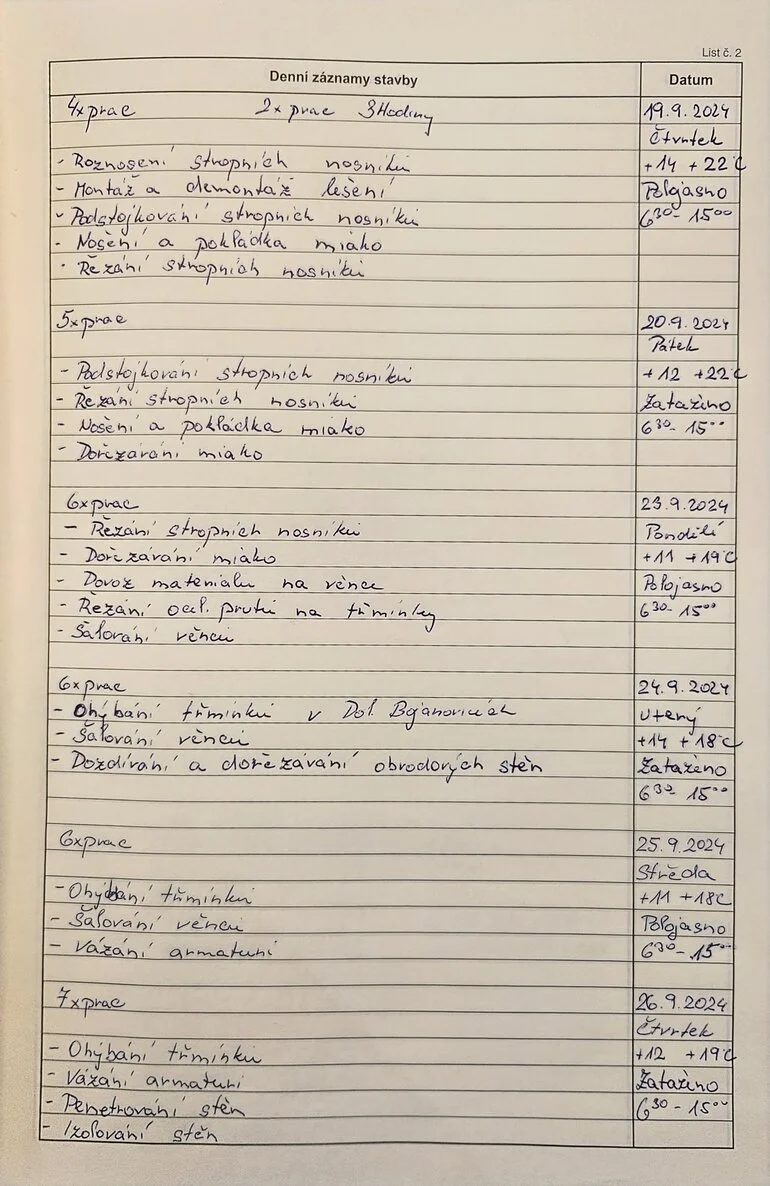 List č. 2
Denní záznamy stavby Datum
4xprac 2x prac 3Hodiny 19.9.2024
Čtvrtek
- Roznosení stropních nosníků +14 +22°C
- Montáž a demontáž lešení Polojasno
- Podstojkování stropních nosníků 6³⁰- 15⁰⁰
- Nošení a pokládka miako
- Řezání stropních nosníků
5xprac 20.9.2024
Pátek
- Podstojkování stropních nosníků +12 +22°C
- Řezání stropních nosníků Zataženo
- Nošení a pokládka miako 6³⁰- 15⁰⁰
- Dořezávání miako
6xprac 23.9.2024
- Řezání stropních nosníků Pondělí
- Dořezávání miako +11 +19°C
- Dovoz materialu na věnce Polojasno
- Řezání ocel. prutů na třmínky 6³⁰- 15⁰⁰
- Šalování věnců
6xprac 24.9.2024
- Ohýbání třmínků v Dol. Bojanovicích Uterý
- Šalování věnců +14 +18°C
- Dozdívání a dořezávání obvodových stěn Zataženo
6³⁰- 15⁰⁰
6xprac 25.9.2024
Středa
- Ohýbání třmínků +11 +18C
- Šalování věnců Polojasno
- Vázání armaturí 6³⁰- 15⁰⁰
7xprac 26.9.2024
Čtvrtek
- Ohýbání třmínků +12 +19°C
- Vázání armaturí Zataženo
- Penetrování stěn 6³⁰- 15⁰⁰
- Izolování stěn